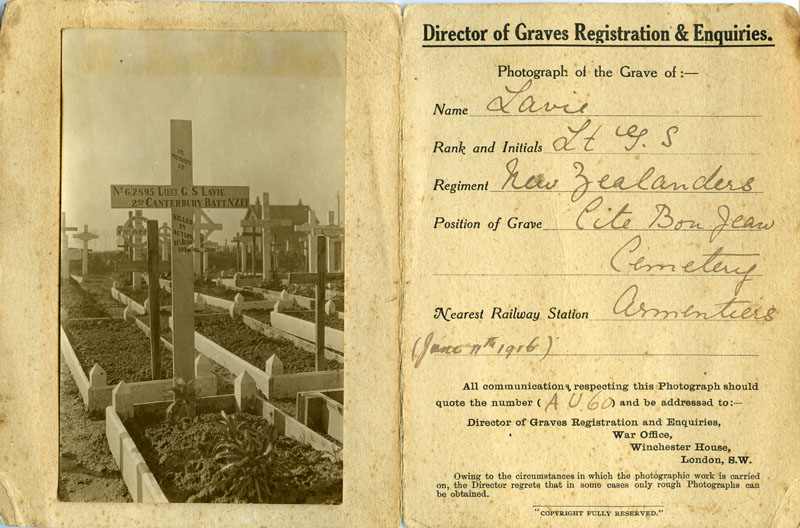 IN
MEMORY
OF
No 6/2895 LIEUT. G. S. LAVIE.
2ND CANTERBURY BATT. N.Z.E.F
KILLED
IN
ACTION
Director of Graves Registration & Enquiries.
Photograph of the Grave of :—
Name Lavie
Rank and Initials Lt G. S
Regiment New Zealanders
Position of Grave Cite Bon Jean
Cemetery
Nearest Railway Station Armentiers
(June 11th 1916)
All communications respecting this Photograph should
quote the number (A U 60) and be addressed to:—
Director of Graves Registration and Enquiries,
War Office,
Winchester House,
London, S.W.
Owing to the circumstances in which the photographic work is carried
on, the Director regrets that in some cases only rough Photographs can
be obtained.
"COPYRIGHT FULLY RESERVED."